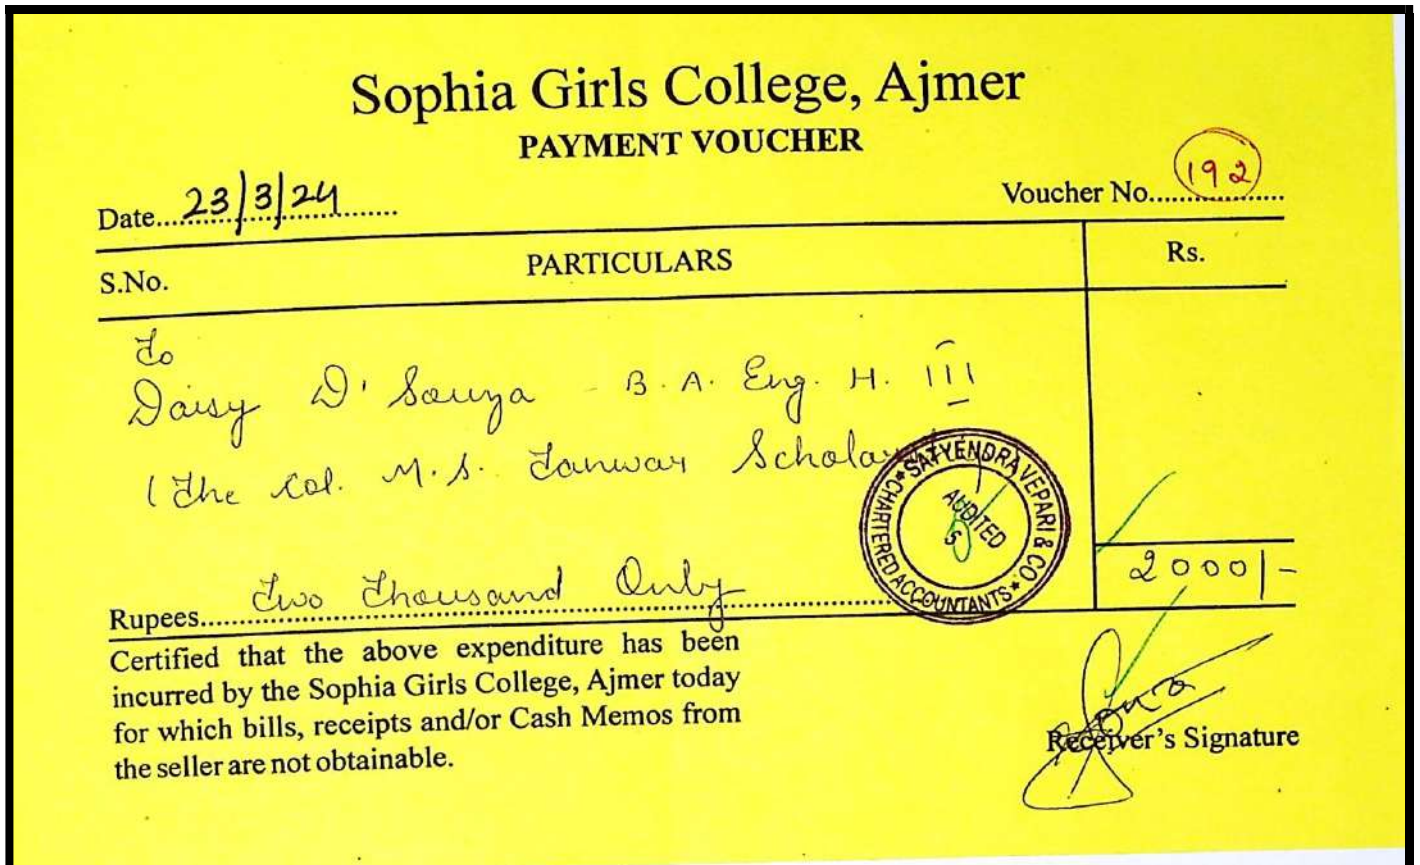 Sophia Girls College, Ajmer
PAYMENT VOUCHER
Date...23/3/24...... Voucher No....192....
S.No. PARTICULARS Rs.
To
Daisy D'Souza - B.A. Eng. H. III
(The Col. M.S. Tanwar
SATYENDRA VEPARI & CO
CHARTERED ACCOUNTANTS
AUDITED
2000/-
Rupees....Two Thousand Only....
Certified that the above expenditure has been
incurred by the Sophia Girls College, Ajmer today
for which bills, receipts and/or Cash Memos from
the seller are not obtainable.
Receiver's Signature